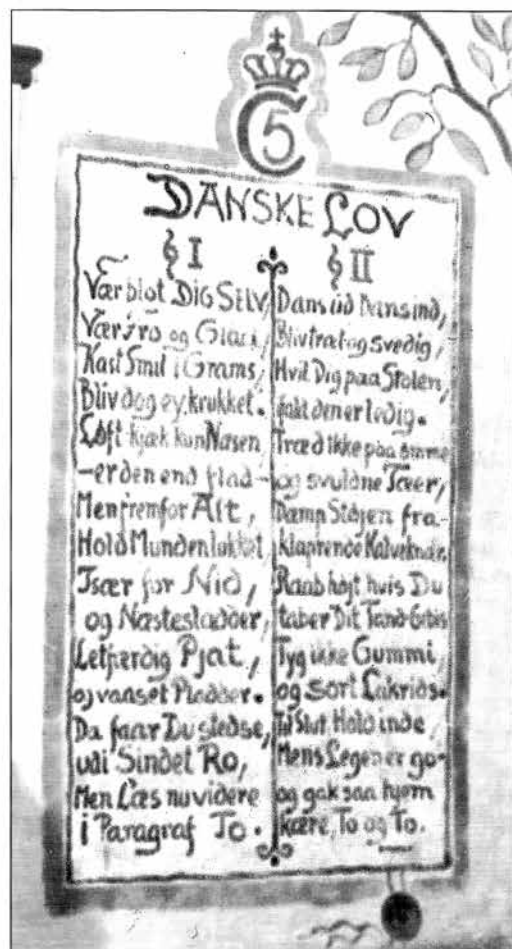 C5
DANSKE LOV
§ I
Vær blot DIG SELV,
Vær fro og Glad,
Kast Smil i Grams,
Bliv dog ej krukket.
Løft kjæk kun Næsen,
- er den end flad -
Men fremfor Alt,
Hold Munden lukket,
Især for Nid,
og Næstesladder,
Letfærdig Pjat,
og vanset Pladder.
Da faar Du stedse,
udi Sindet Ro,
Men Læs nu videre
i Paragraf To.
§ II
Dans ud Dans ind,
Bliv træt og svedig,
Hvil Dig paa Stolen,
ifald den er ledig.
Træd ikke paa ømme
og svuldne Tæer,
Dæmp Støjen fra-
klaprende Kalveknæ.
Raab højt hvis Du
taber Dit Tand-Gebis
Tyg ikke Gummi,
og sort Lakrids.
Til Slut Hold inde,
Mens Legen er go-
og gak saa hjem
kære, To og To.